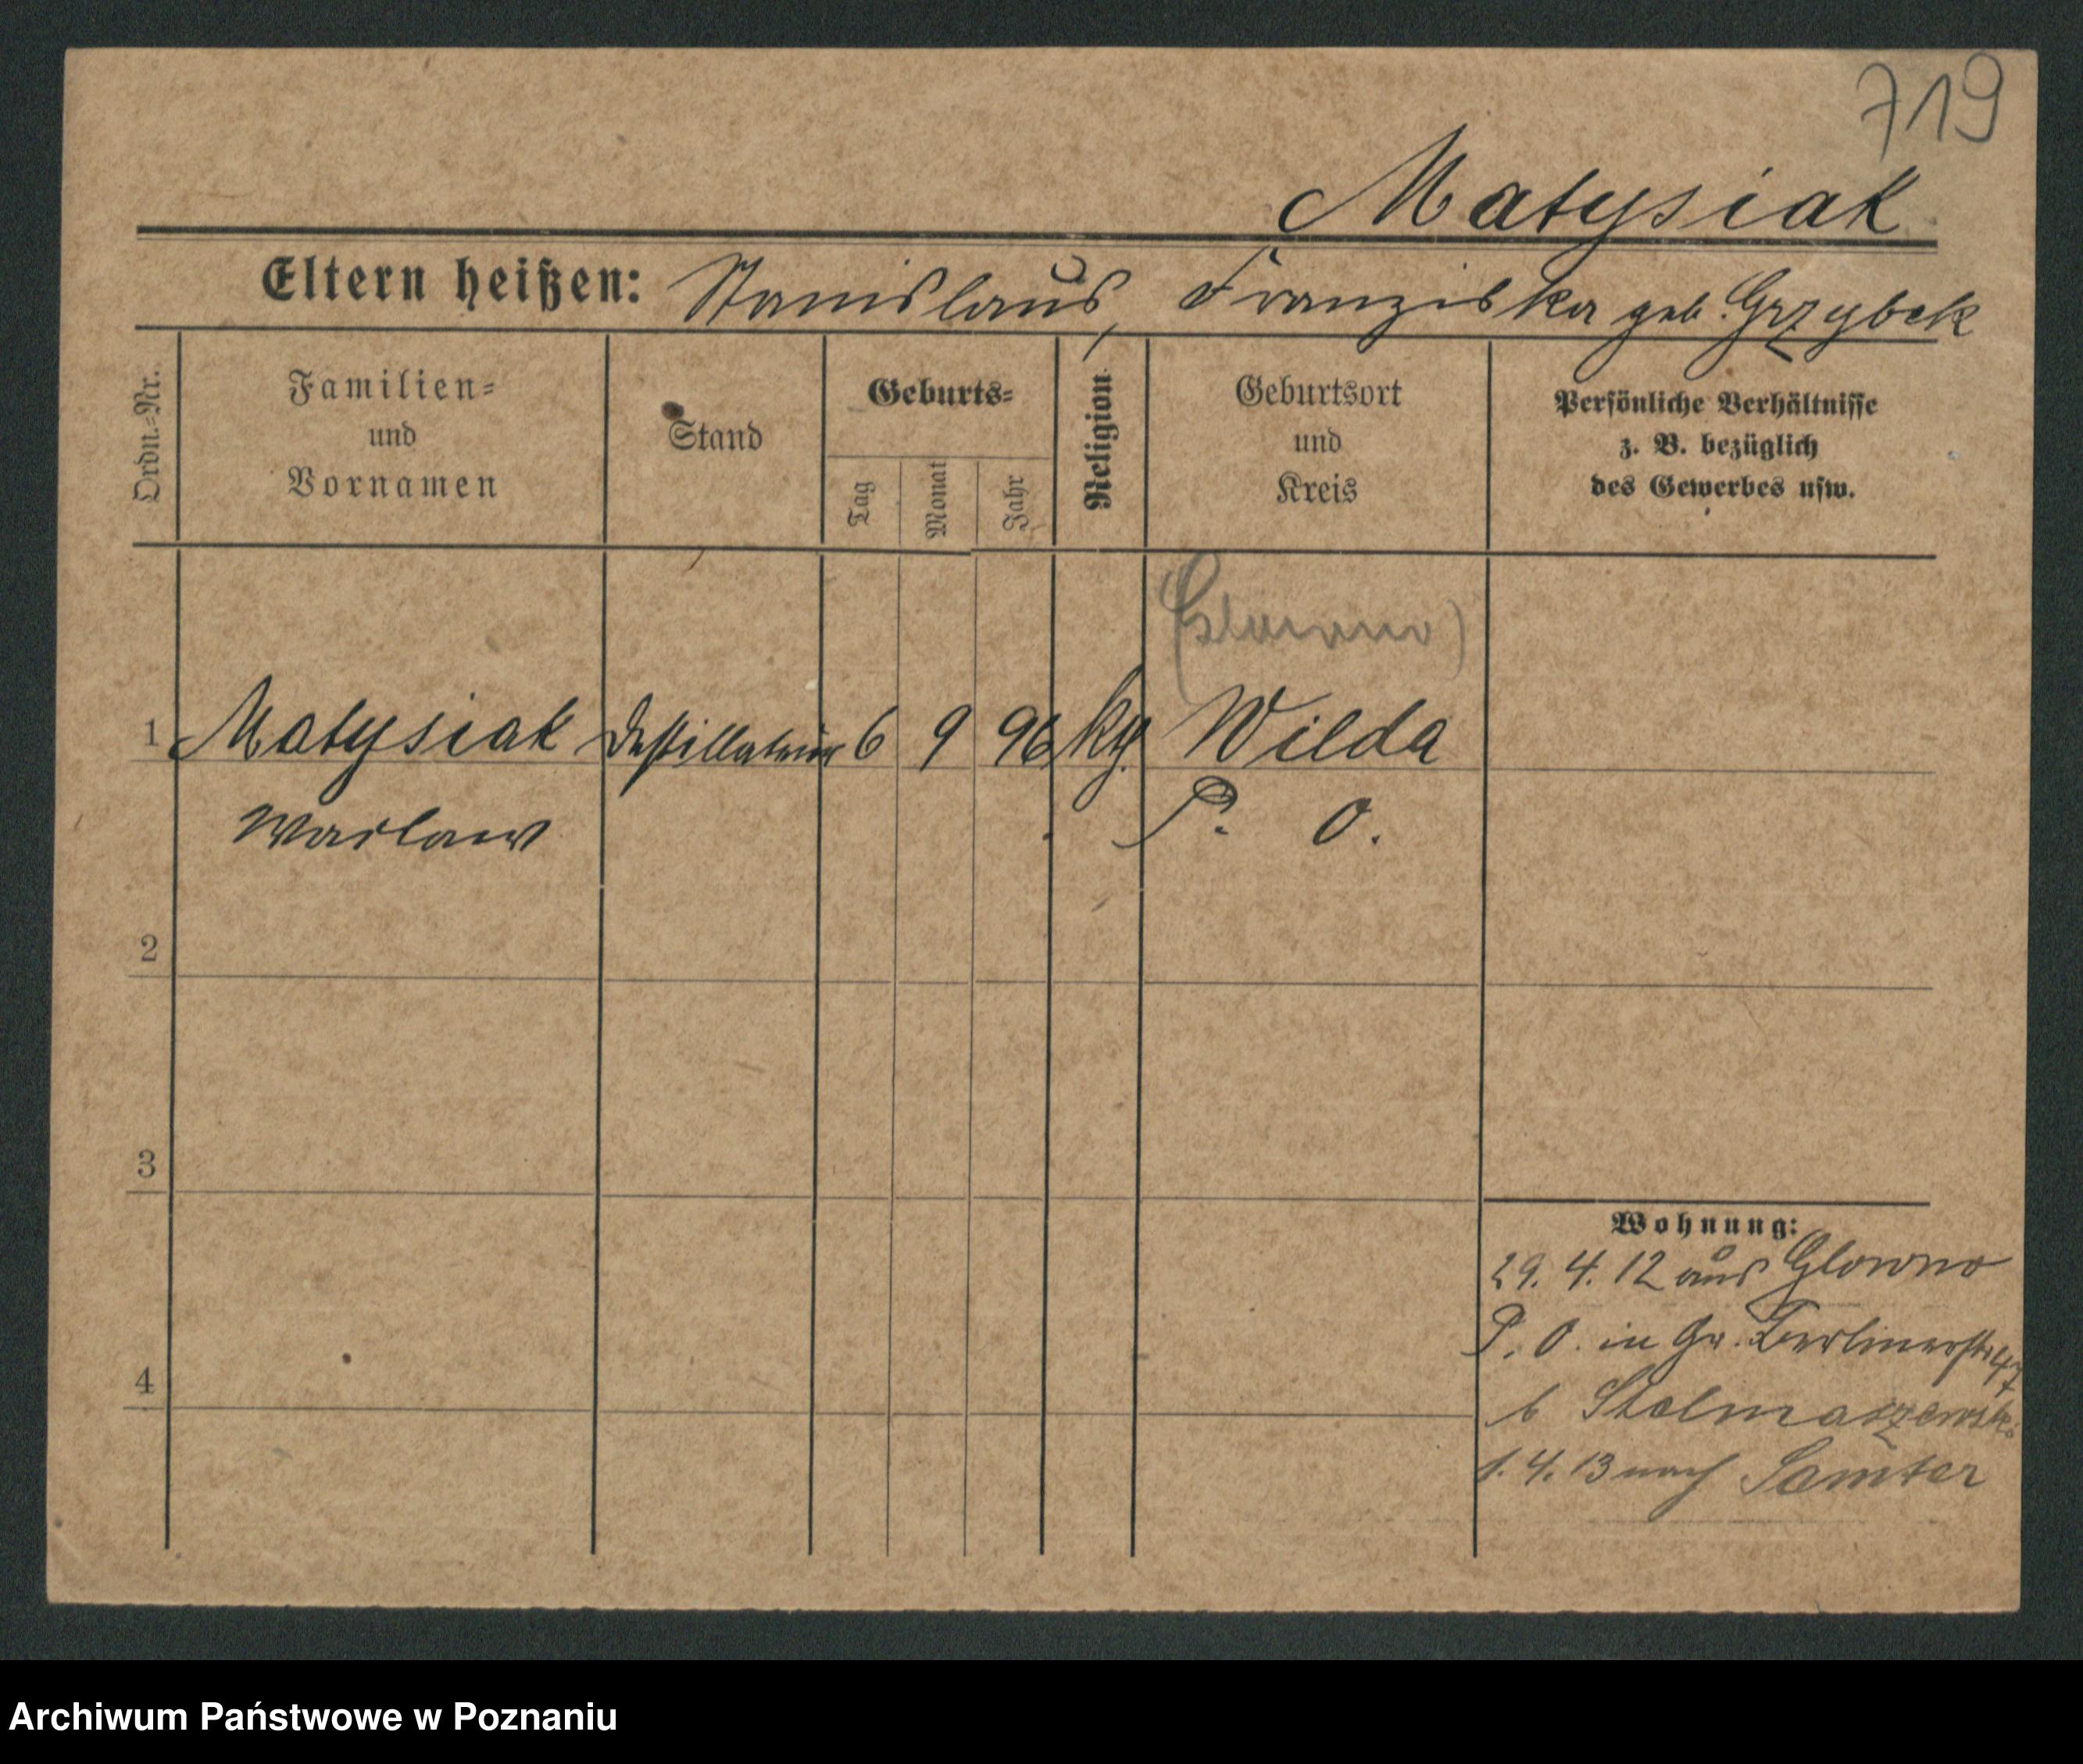 719
Matysiak
Eltern heißen: Stanislaus, Franziska geb. Grzybek
Ordn.-Nr.
Familien-
und
Vornamen
Stand
Geburts-
Tag
Monat
Jahr
Religion
Geburtsort
und
Kreis
Persönliche Verhältnisse
z. B. bezüglich
des Gewerbes usw.
(Glowno)
1 Matysiak Destillateur 6 9 96 kg. Wilda
Waclaw P. O.
2
3
4
Wohnung:
29. 4. 12 aus Glowno
P. O. in Gr. Berlinerstr 47
b Stelmaszewski
1. 4. 13 nach Samter
Archiwum Państwowe w Poznaniu